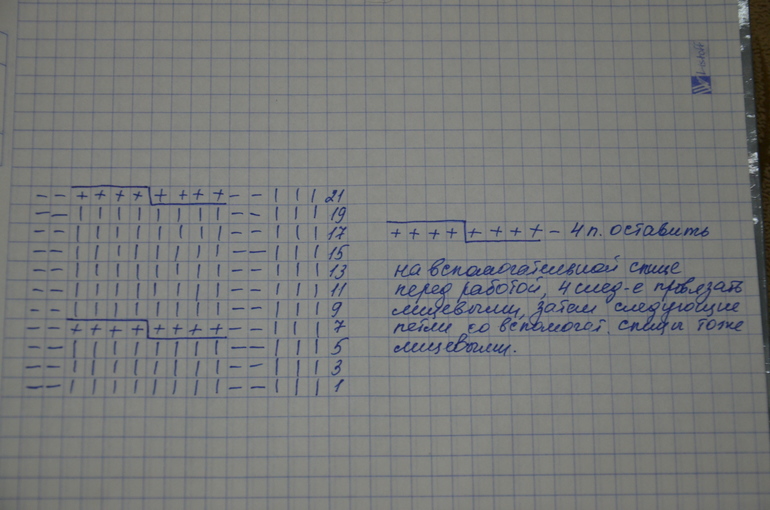 – – + + + + + + + + – – | | | 21
– – | | | | | | | | – – | | | 19
– – | | | | | | | | – – | | | 17
– – | | | | | | | | – – | | | 15
– – | | | | | | | | – – | | | 13
– – | | | | | | | | – – | | | 11
– – | | | | | | | | – – | | | 9
– – + + + + + + + + – – | | | 7
– – | | | | | | | | – – | | | 5
– – | | | | | | | | – – | | | 3
– – | | | | | | | | – – | | | 1
+ + + + + + + + – 4 п. оставить
на вспомогательной спице
перед работой, 4 след-е провязать
лицевыми, затем следующие
петли со вспомогат. спицы тоже
лицевыми.